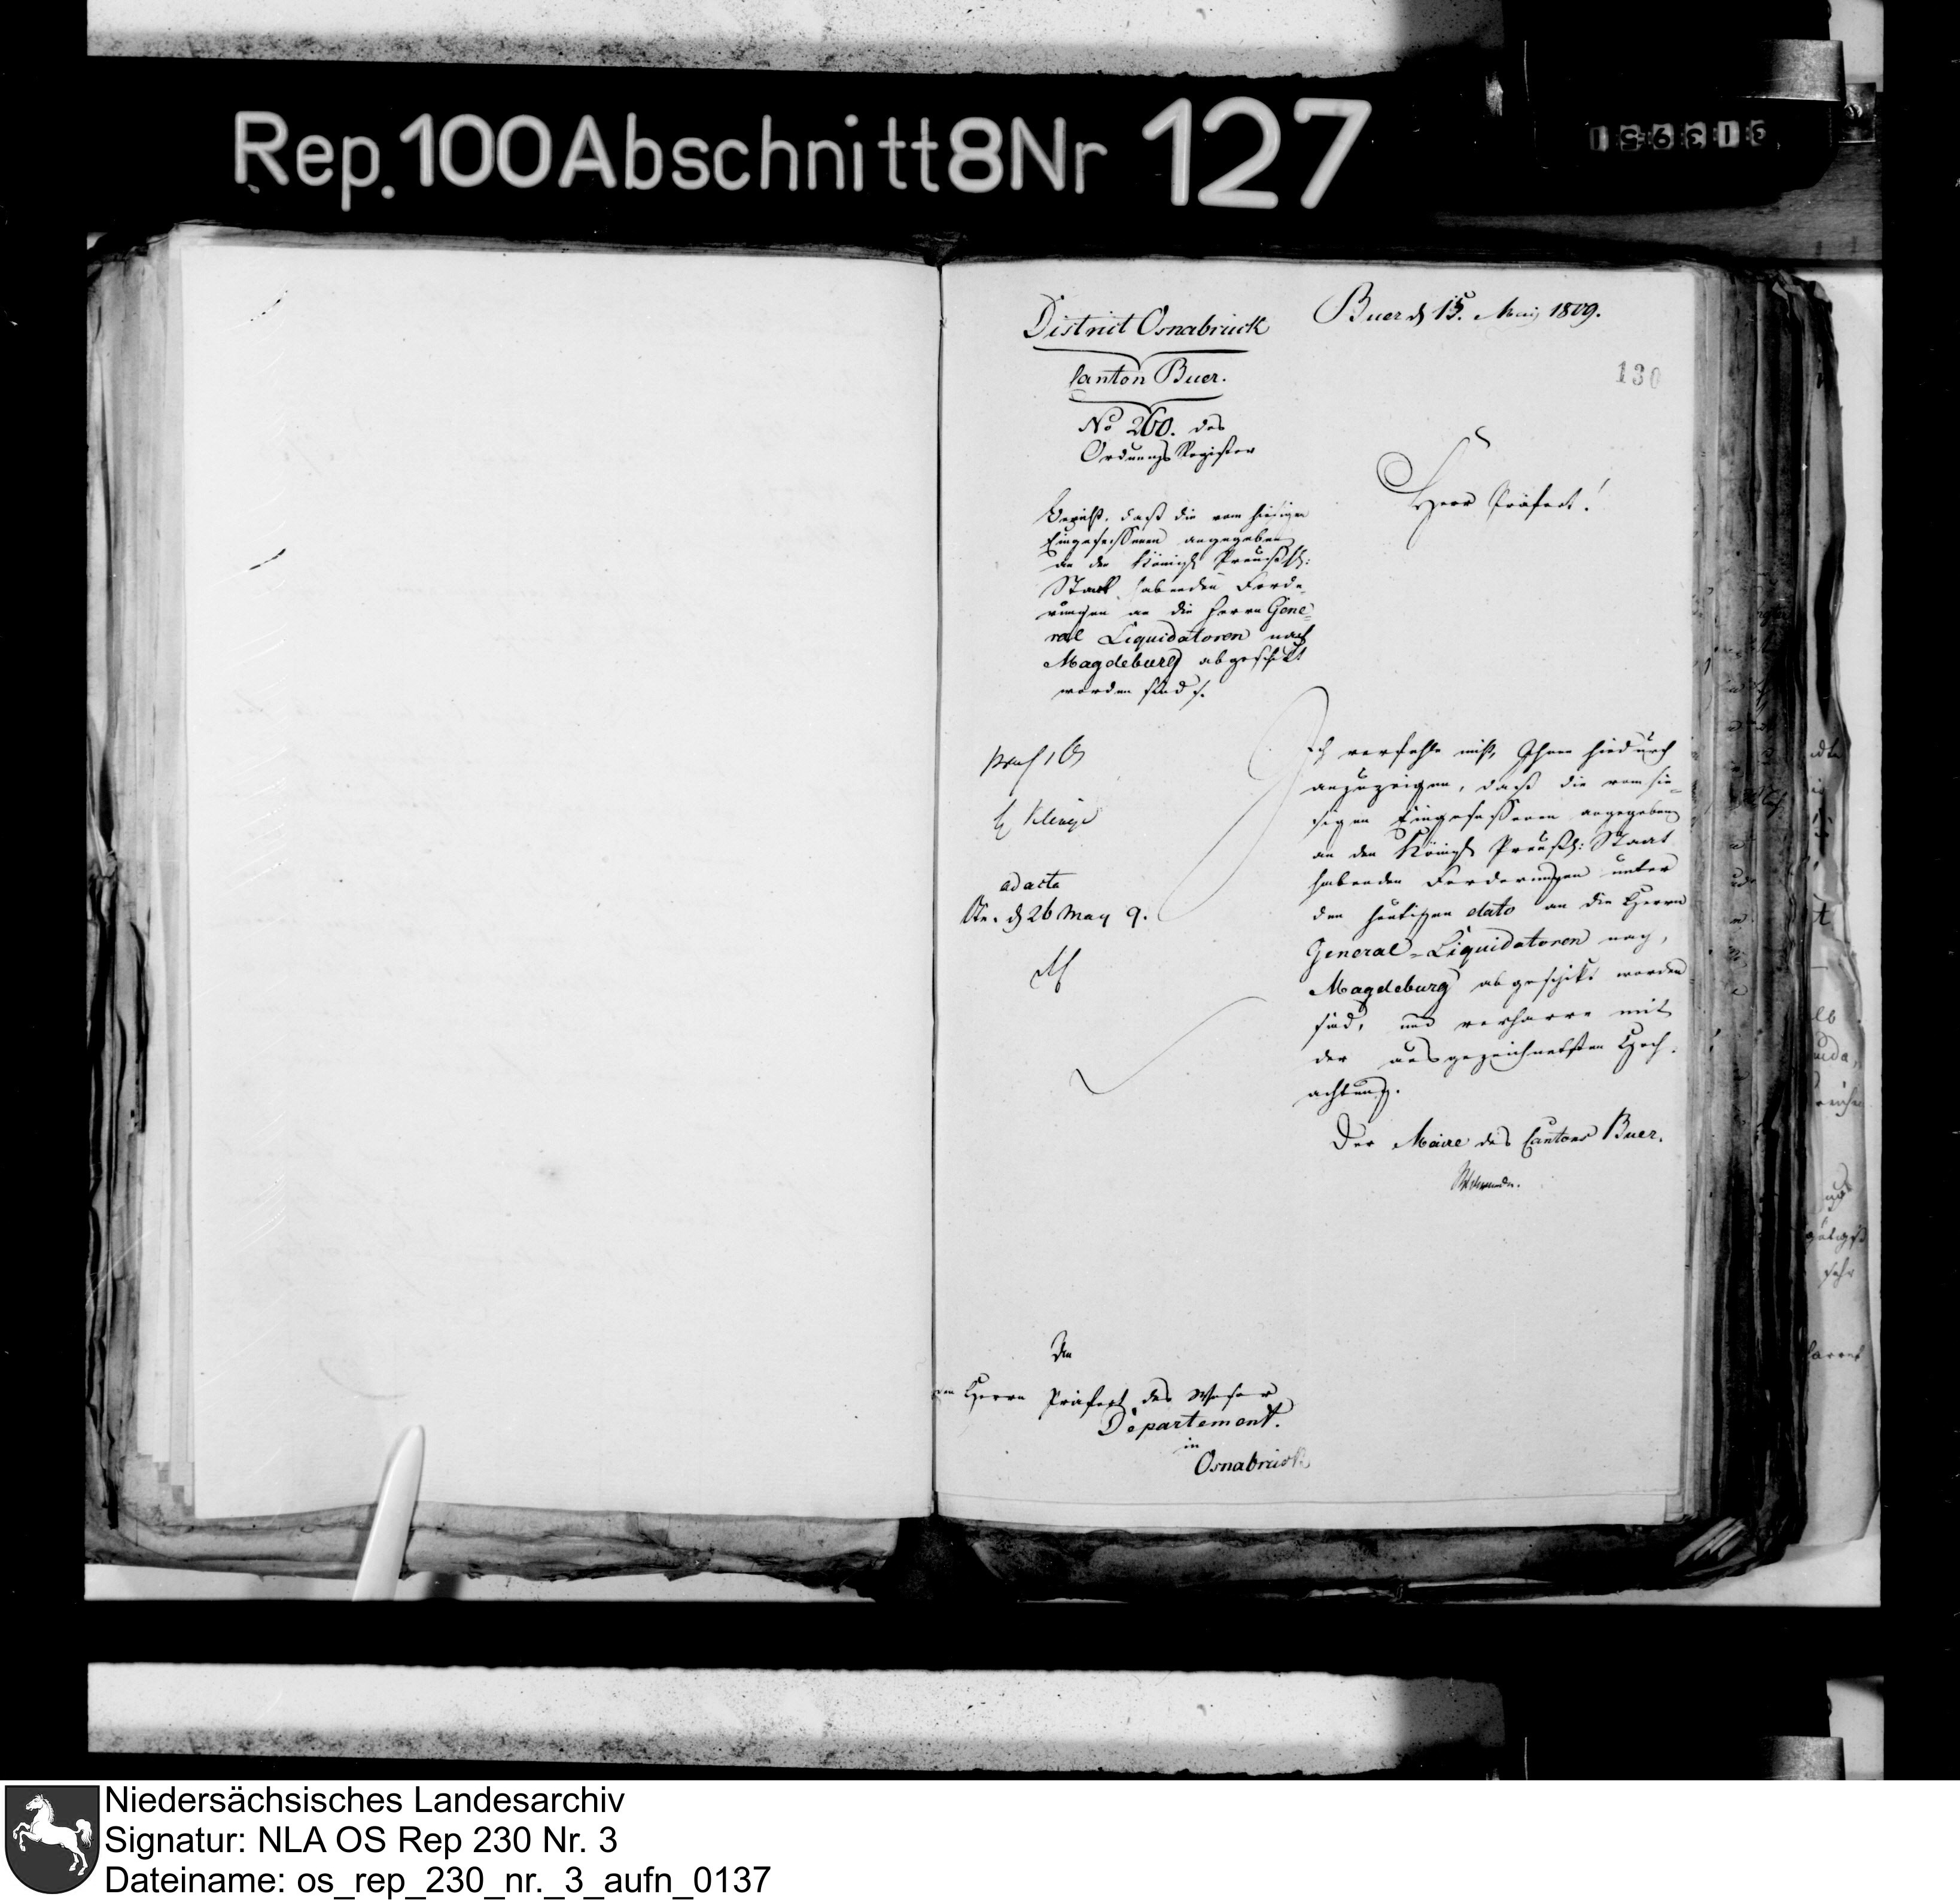 Rep. 100 Abschnitt 8 Nr 127
District Osnabrück
Canton Buer.
No 260. des
Ordnungs Register
Buer d 15. Maij 1809.
130
Herr Präfect!
Bericht, daß die vom hiesigen
Eingesessenen angegeben
an den Königl Preußisch:
Staat habenden Forde-
rungen an die Herrn Gene-
ral Liquidatoren nach
Magdeburg abgeschickt
worden sind
adacta
d 26 May 9.
Ich verfehle nicht, Ihnen hiedurch
anzuzeigen, daß die vom hie-
sigen Eingesessenen angegeben
an den Königl Preußl: Staat
habenden Forderungen unter
den heutigen dato an die Herrn
General-Liquidatoren nach
Magdeburg abgeschikt worden
sind, und verharre mit
der ausgezeichnetsten Hoch-
achtung.
Der Maire des Cantons Buer.
An
den Herrn Präfect des Weser
Département.
in
Osnabrück
Niedersächsisches Landesarchiv
Signatur: NLA OS Rep 230 Nr. 3
Dateiname: os_rep_230_nr._3_aufn_0137